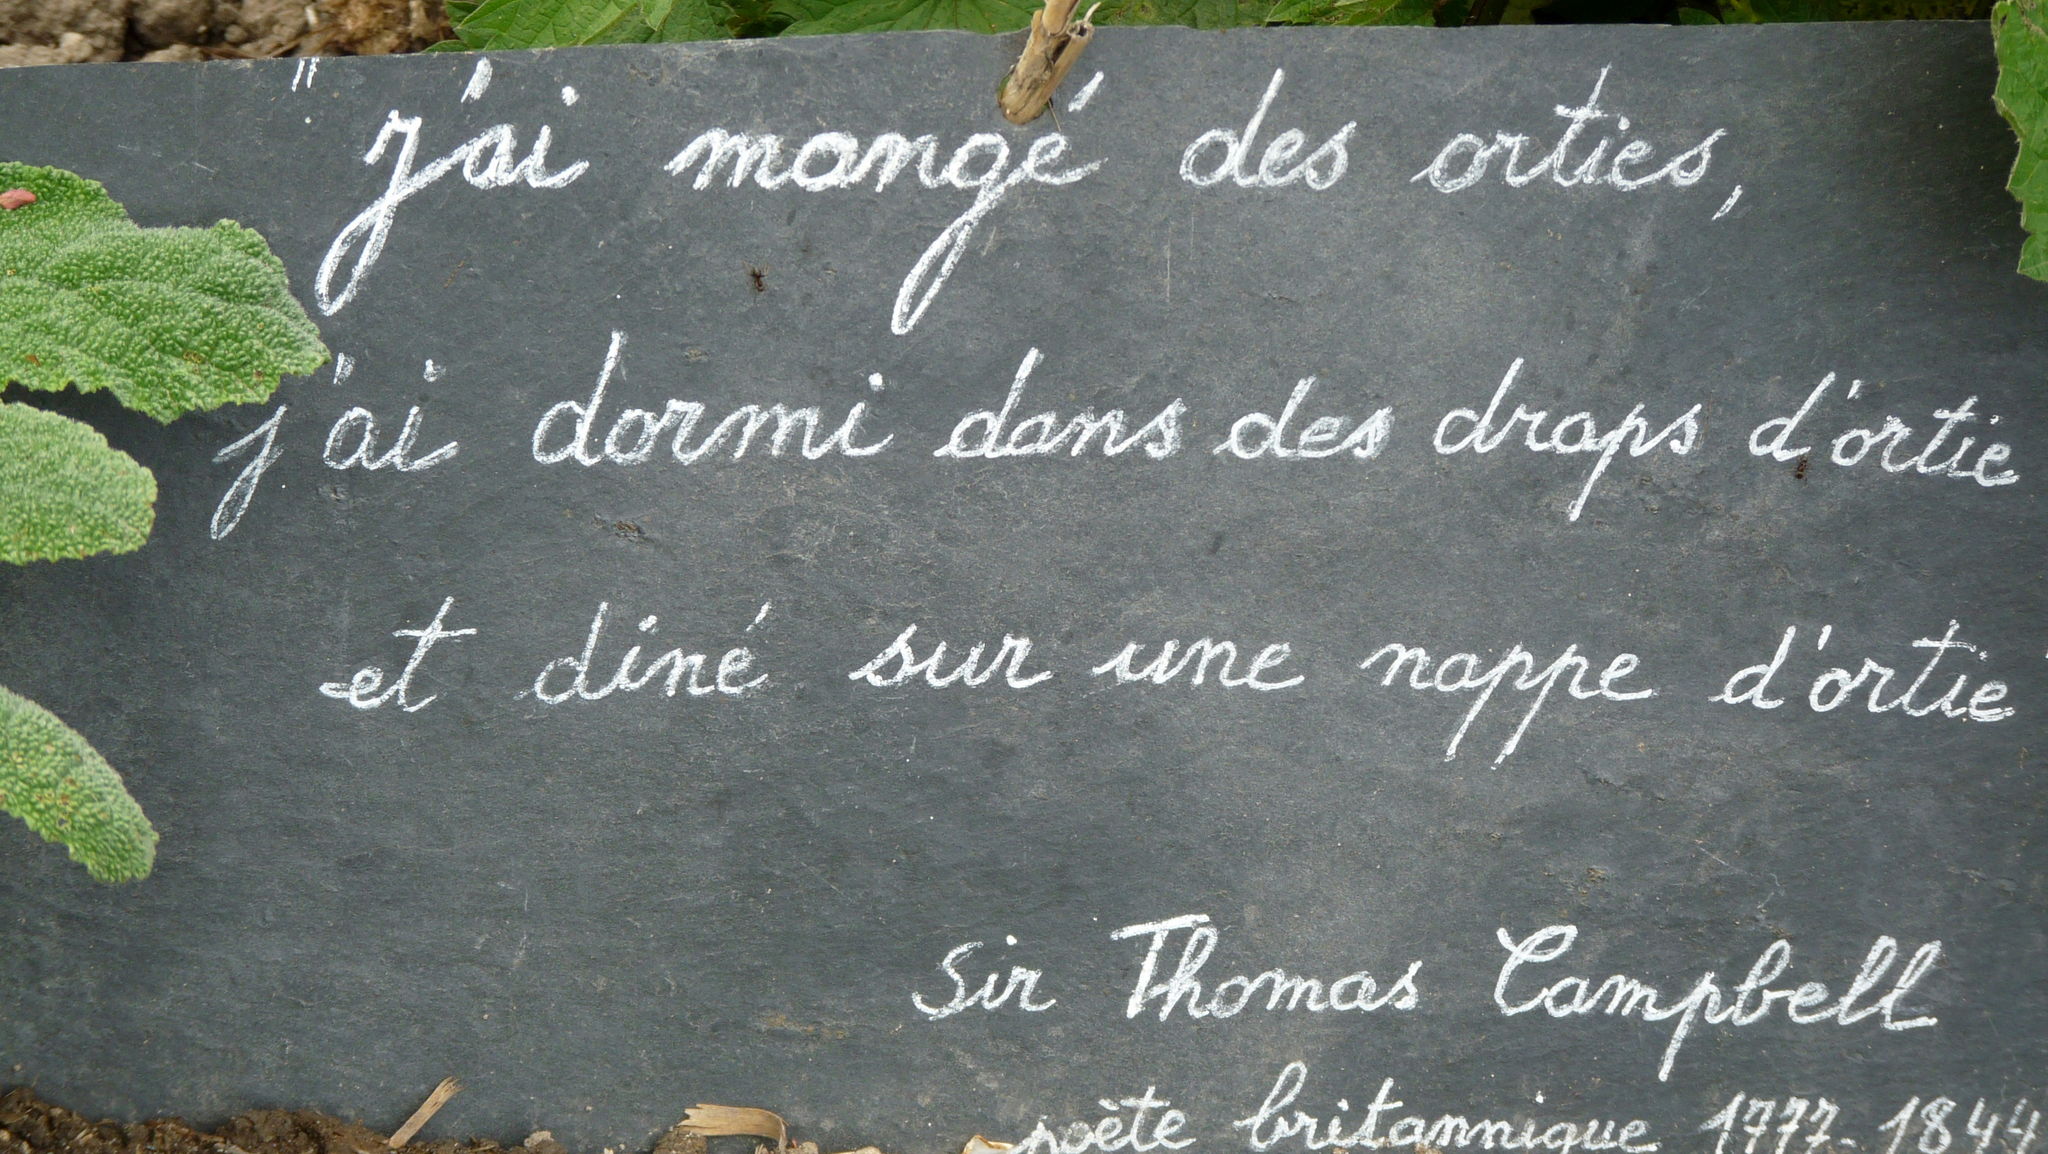 "j'ai mangé des orties,
j'ai dormi dans des draps d'ortie
et diné sur une nappe d'ortie"
Sir Thomas Campbell
poète britannique 1777-1844